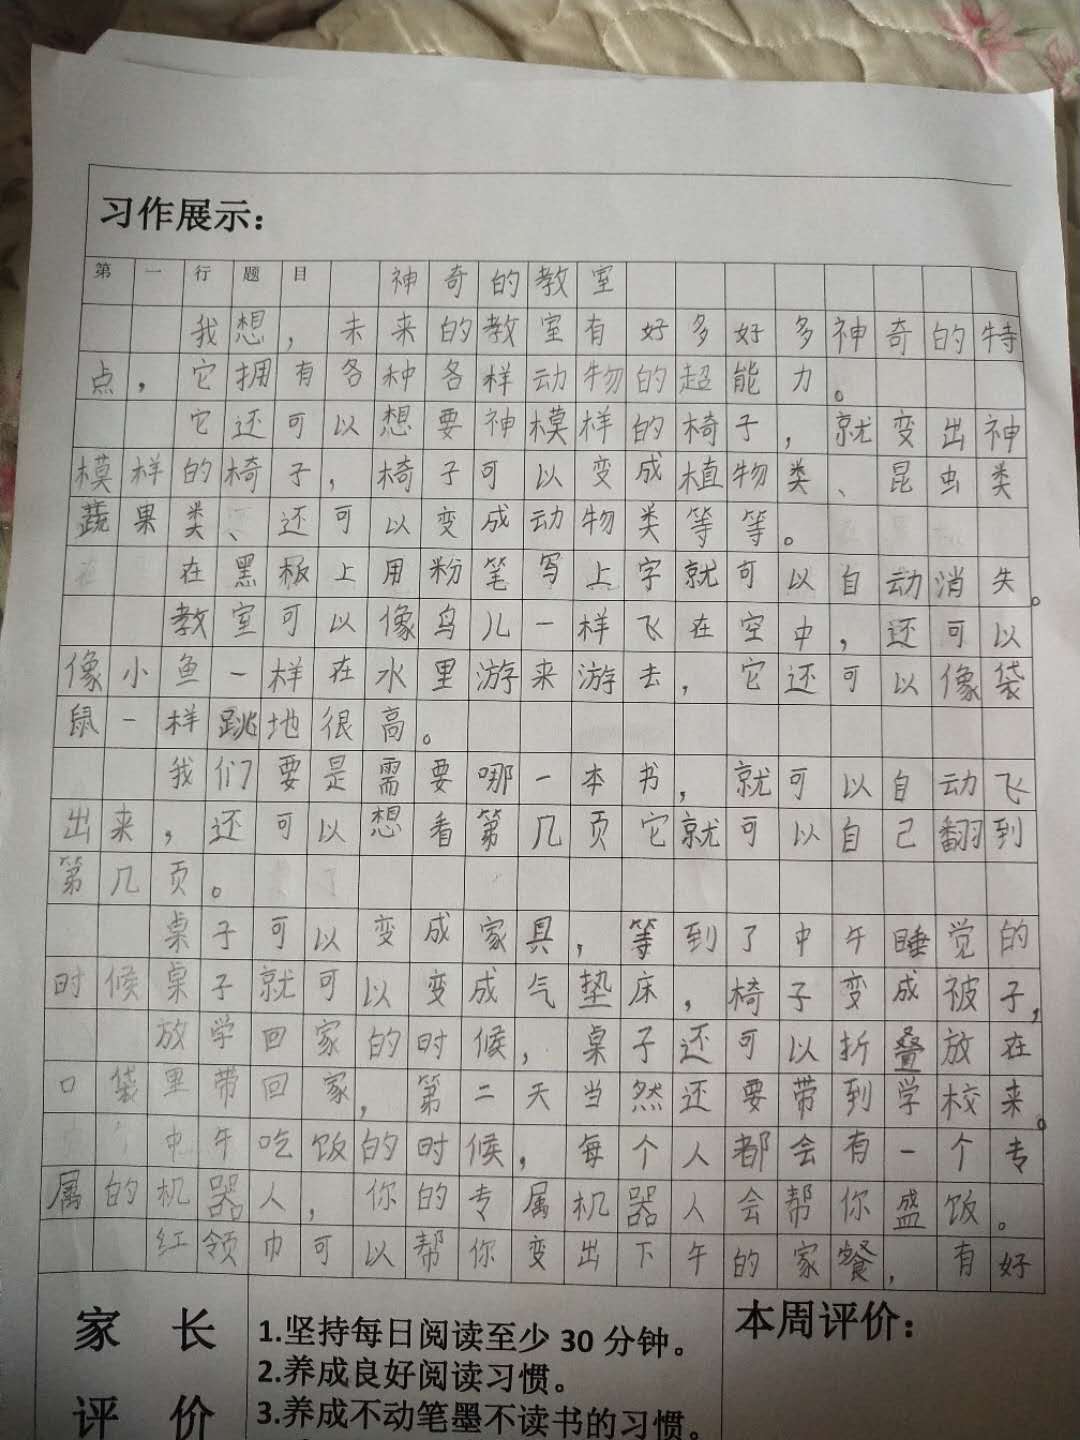 习作展示：
第一行题目 神奇的教室
我想，未来的教室有好多好多神奇的特
点，它拥有各种各样动物的超能力。
它还可以想要神模样的椅子，就变出神
模样的椅子，椅子可以变成植物类、昆虫类
蔬果类、还可以变成动物类等等。
在黑板上用粉笔写上字就可以自动消失。
教室可以像鸟儿一样飞在空中，还可以
像小鱼一样在水里游来游去，它还可以像袋
鼠一样跳地很高。
我们要是需要哪一本书，就可以自动飞
出来，还可以想看第几页它就可以自己翻到
第几页。
桌子可以变成家具，等到了中午睡觉的
时候桌子就可以变成气垫床，椅子变成被子，
放学回家的时候，桌子还可以折叠放在
口袋里带回家，第二天当然还要带到学校来。
中午吃饭的时候，每个人都会有一个专
属的机器人，你的专属机器人会帮你盛饭。
红领巾可以帮你变出下午的家餐，有好
家长 1.坚持每日阅读至少30分钟。 本周评价：
2.养成良好阅读习惯。
评价 3.养成不动笔墨不读书的习惯。